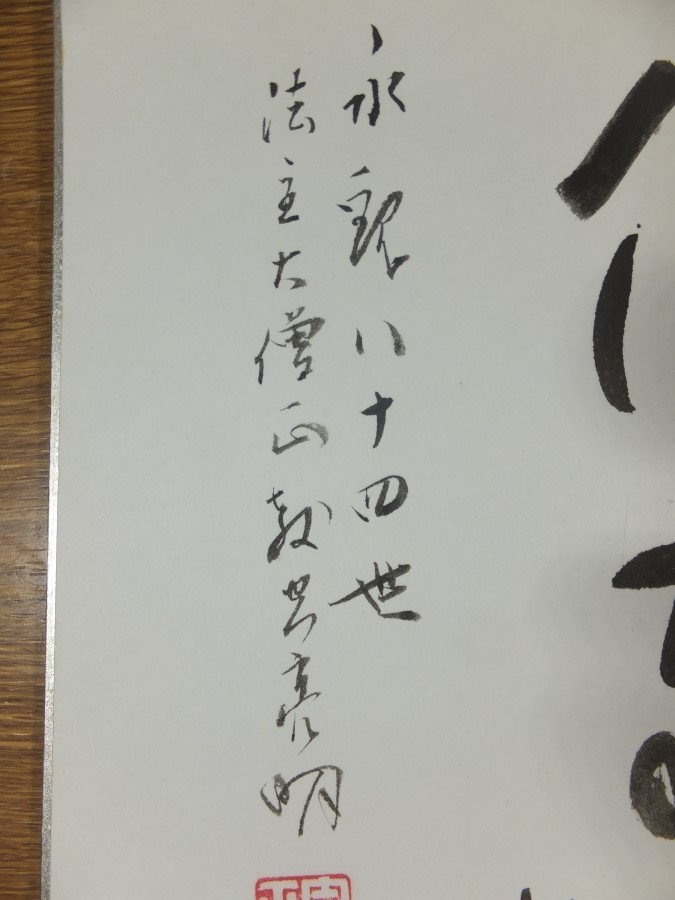 永観八十四世
法主大僧正教亮明